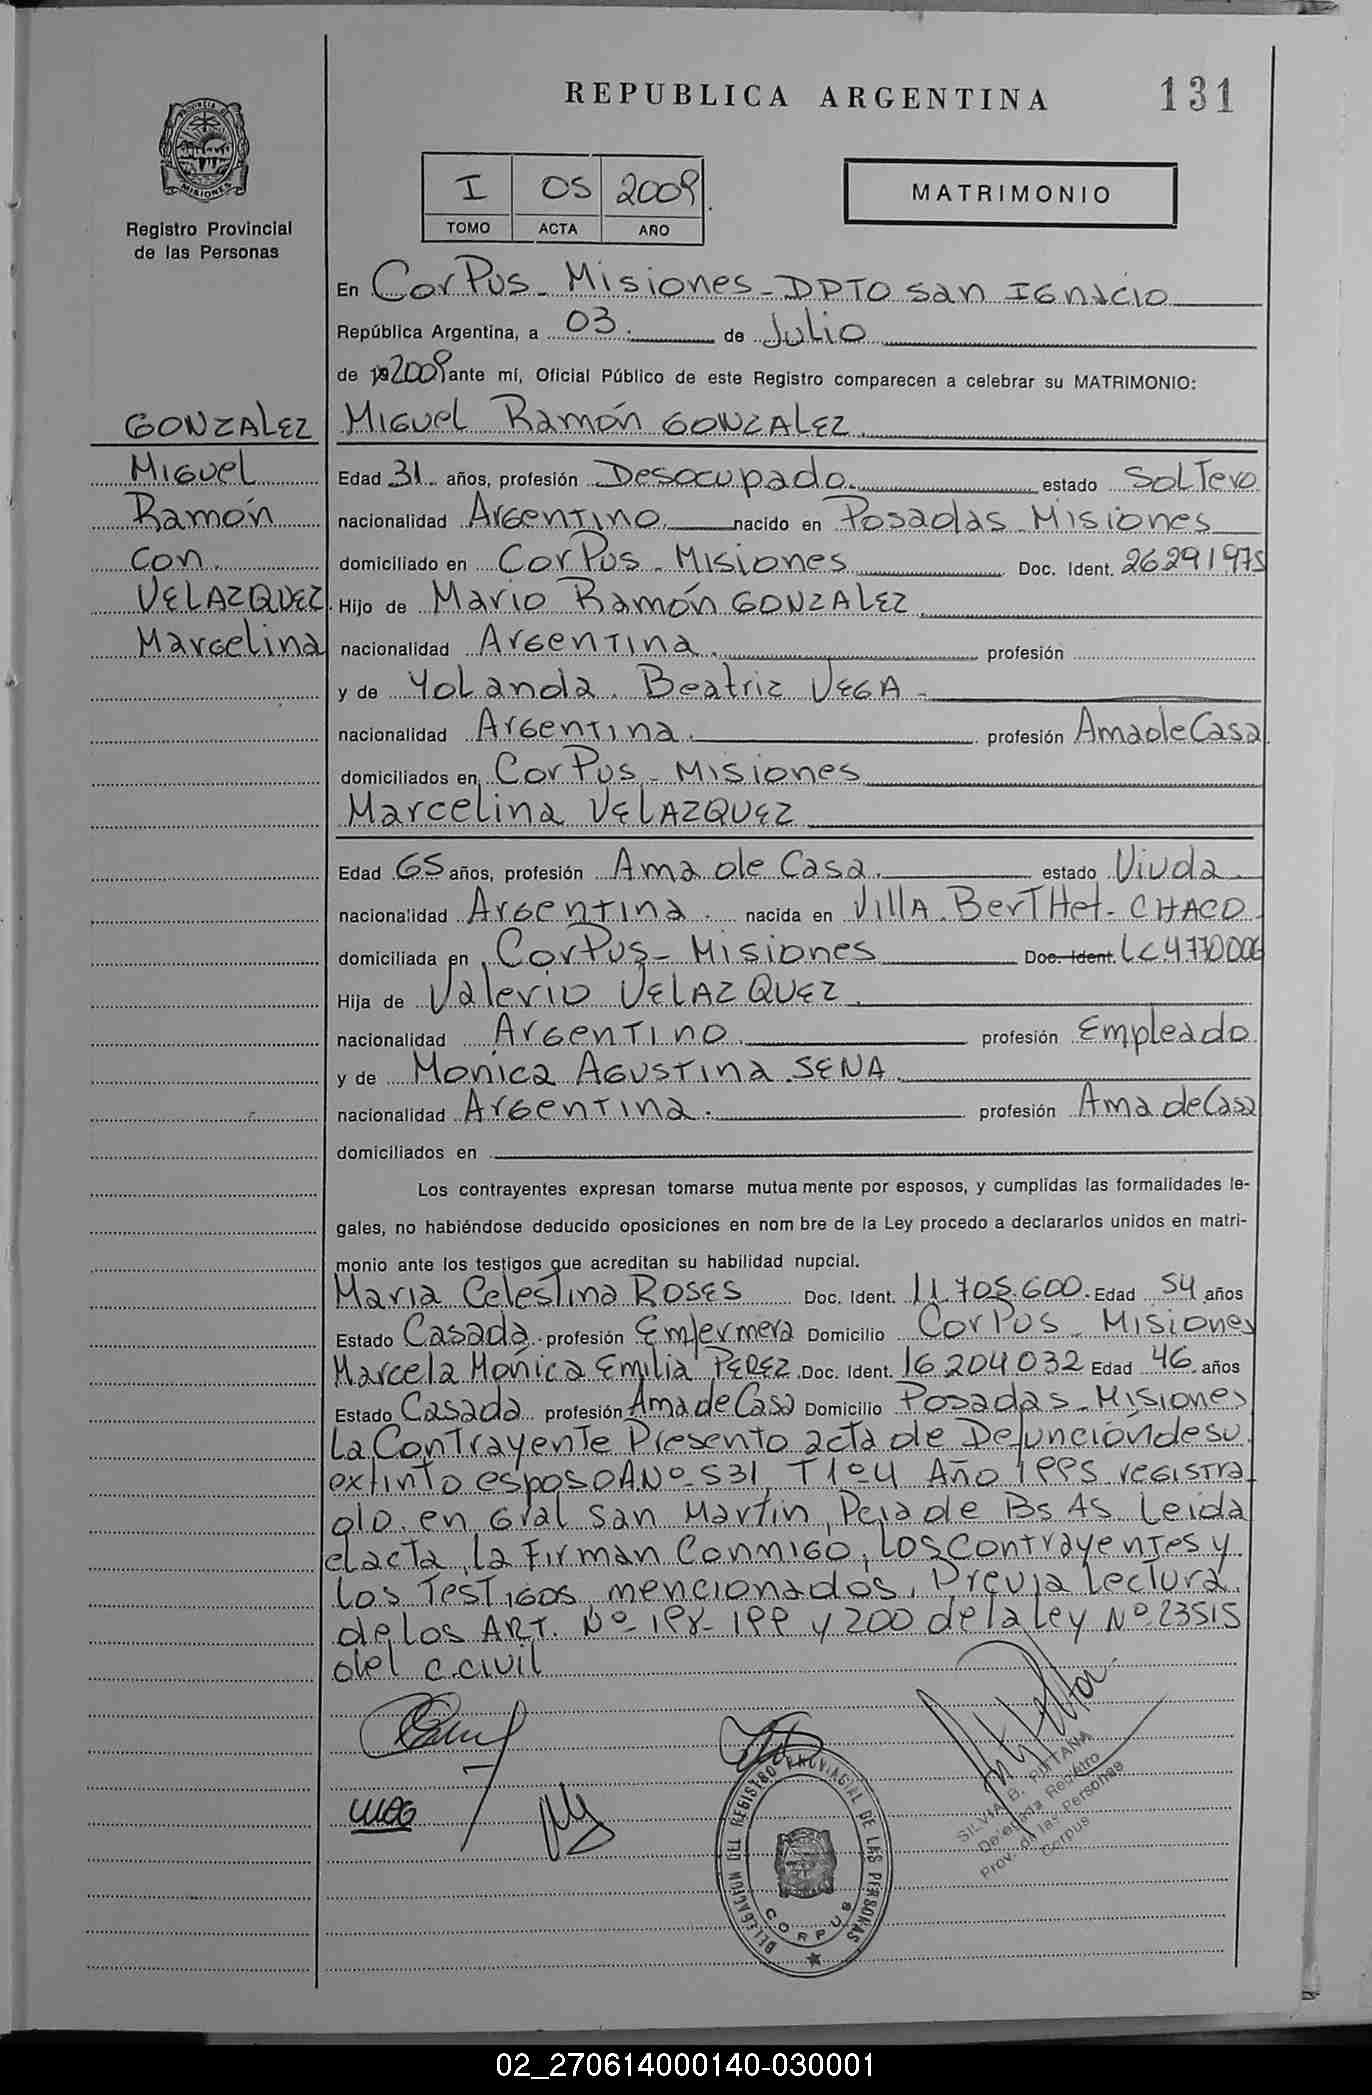 REPUBLICA ARGENTINA 131
PROVINCIA DE MISIONES
Registro Provincial
de las Personas
I 05 2009
TOMO ACTA AÑO
MATRIMONIO
En Corpus - Misiones - DPTO San Ignacio
República Argentina, a 03 de Julio
de 192009 ante mí, Oficial Público de este Registro comparecen a celebrar su MATRIMONIO:
GONZALEZ Miguel Ramón GONZALEZ
Miguel Edad 31 años, profesión Desocupado. estado Soltero
Ramón nacionalidad Argentino nacido en Posadas Misiones
con domiciliado en Corpus - Misiones Doc. Ident. 26291975
VELAZQUEZ Hijo de Mario Ramón GONZALEZ
Marcelina nacionalidad Argentina. profesión
y de Yolanda Beatriz VEGA -
nacionalidad Argentina. profesión Ama de Casa
domiciliados en Corpus - Misiones
Marcelina VELAZQUEZ
Edad 65 años, profesión Ama de Casa. estado Viuda.
nacionalidad Argentina. nacida en Villa BerTHet - CHACO
domiciliada en Corpus - Misiones Doc. Ident. LC.4770006
Hija de Valerio VELAZQUEZ.
nacionalidad Argentino. profesión Empleado
y de Monica Agustina SENA.
nacionalidad Argentina. profesión Ama de Casa
domiciliados en
Los contrayentes expresan tomarse mutua mente por esposos, y cumplidas las formalidades le-
gales, no habiéndose deducido oposiciones en nom bre de la Ley procedo a declararlos unidos en matri-
monio ante los testigos que acreditan su habilidad nupcial.
Maria Celestina ROSES Doc. Ident. 11.705.600. Edad 54 años
Estado Casada profesión Enfermera Domicilio Corpus - Misiones
Marcela Mónica Emilia PEREZ Doc. Ident. 16.204.032 Edad 46 años
Estado Casada profesión Ama de Casa Domicilio Posadas - Misiones
La Contrayente Presento acta de Defunción de su
extinto esposo A Nº 531, T 1º 4 Año 1995 registra
do en Gral San Martín, Pcia de Bs As Leida
el acta, la firman Conmigo, los Contrayentes y
los Testigos mencionados, Previa Lectura
de los ART. Nº 198 - 199 y 200 de la Ley Nº 23515
del c. civil
DELEGACION DEL REGISTRO PROVINCIAL DE LAS PERSONAS
CORPUS
SILVIA B.
Delegada Registro
Prov. de las Personas
Corpus
02_270614000140-030001